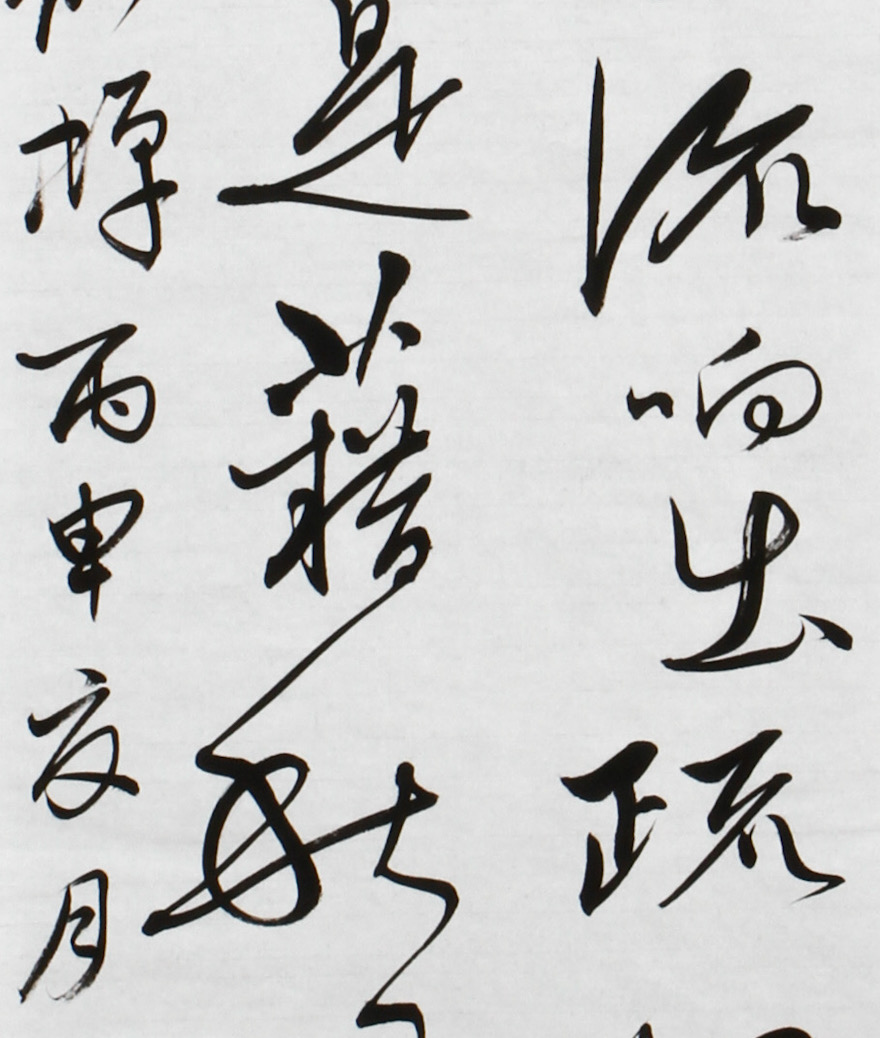 流响出疏
是藉秋
蝉丙申夏月